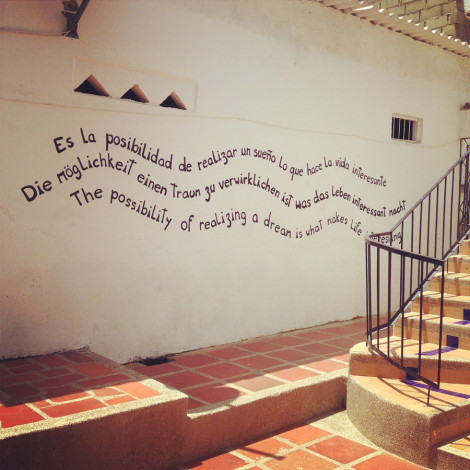 Es la posibilidad de realizar un sueño lo que hace la vida interesante
Die möglichkeit einen Traum zu verwirklichen ist was das Leben interessant nacht
The possibility of realizing a dream is what nakes Life interesting